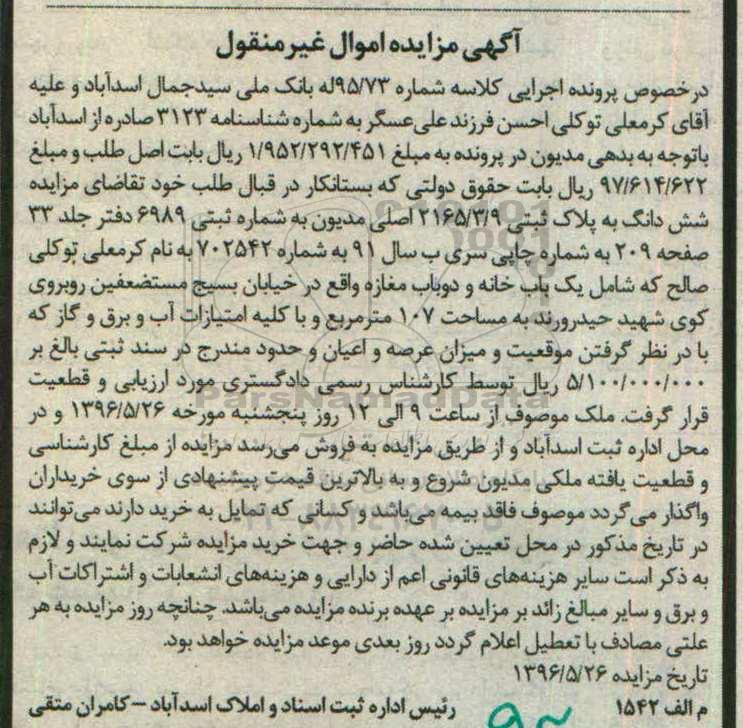 آگهی مزایده اموال غیرمنقول
درخصوص پرونده اجرایی کلاسه شماره ۹۵/۷۳له بانک ملی سیدجمال اسدآباد و علیه
آقای کرمعلی توکلی احسن فرزند علی‌عسگر به شماره شناسنامه ۳۱۲۳ صادره از اسدآباد
باتوجه به بدهی مدیون در پرونده به مبلغ ۱/۹۵۲/۲۹۲/۴۵۱ ریال بابت اصل طلب و مبلغ
۹۷/۶۱۴/۶۲۲ ریال بابت حقوق دولتی که بستانکار در قبال طلب خود تقاضای مزایده
شش دانگ به پلاک ثبتی ۲۱۶۵/۳/۹ اصلی مدیون به شماره ثبتی ۶۹۸۹ دفتر جلد ۳۳
صفحه ۲۰۹ به شماره چاپی سری ب سال ۹۱ به شماره ۷۰۲۵۴۲ به نام کرمعلی توکلی
صالح که شامل یک باب خانه و دوباب مغازه واقع در خیابان بسیج مستضعفین روبروی
کوی شهید حیدروند به مساحت ۱۰۷ مترمربع و با کلیه امتیازات آب و برق و گاز که
با در نظر گرفتن موقعیت و میزان عرصه و اعیان و حدود مندرج در سند ثبتی بالغ بر
۵/۱۰۰/۰۰۰/۰۰۰ ریال توسط کارشناس رسمی دادگستری مورد ارزیابی و قطعیت
قرار گرفت. ملک موصوف از ساعت ۹ الی ۱۲ روز پنجشنبه مورخه ۱۳۹۶/۵/۲۶ و در
محل اداره ثبت اسدآباد و از طریق مزایده به فروش می‌رسد مزایده از مبلغ کارشناسی
و قطعیت یافته ملکی مدیون شروع و به بالاترین قیمت پیشنهادی از سوی خریداران
واگذار می‌گردد موصوف فاقد بیمه می‌باشد و کسانی که تمایل به خرید دارند می‌توانند
در تاریخ مذکور در محل تعیین شده حاضر و جهت خرید مزایده شرکت نمایند و لازم
به ذکر است سایر هزینه‌های قانونی اعم از دارایی و هزینه‌های انشعابات و اشتراکات آب
و برق و سایر مبالغ زائد بر مزایده بر عهده برنده مزایده می‌باشد. چنانچه روز مزایده به هر
علتی مصادف با تعطیل اعلام گردد روز بعدی موعد مزایده خواهد بود.
تاریخ مزایده ۱۳۹۶/۵/۲۶
م الف ۱۵۴۲ رئیس اداره ثبت اسناد و املاک اسدآباد – کامران متقی
ParsNamadData